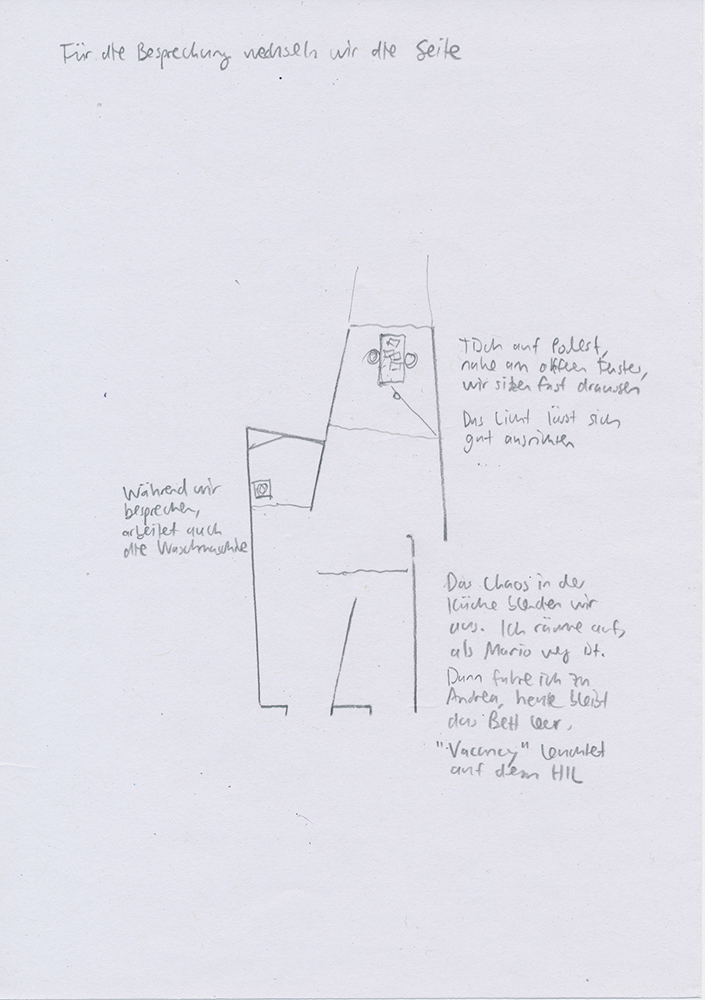 Für die Besprechung wechseln wir die Seite
Tisch auf Podest,
nahe am offenen Fenster,
wir sitzen fast draussen
Das Licht lässt sich
gut ausrichten
Während wir
besprechen,
arbeitet auch
die Waschmaschine
Das Chaos in der
Küche blenden wir
aus. Ich räume auf,
als Mario weg ist.
Dann fahre ich zu
Andrea, heute bleibt
das Bett leer.
"Vacancy" leuchtet
auf dem HIL